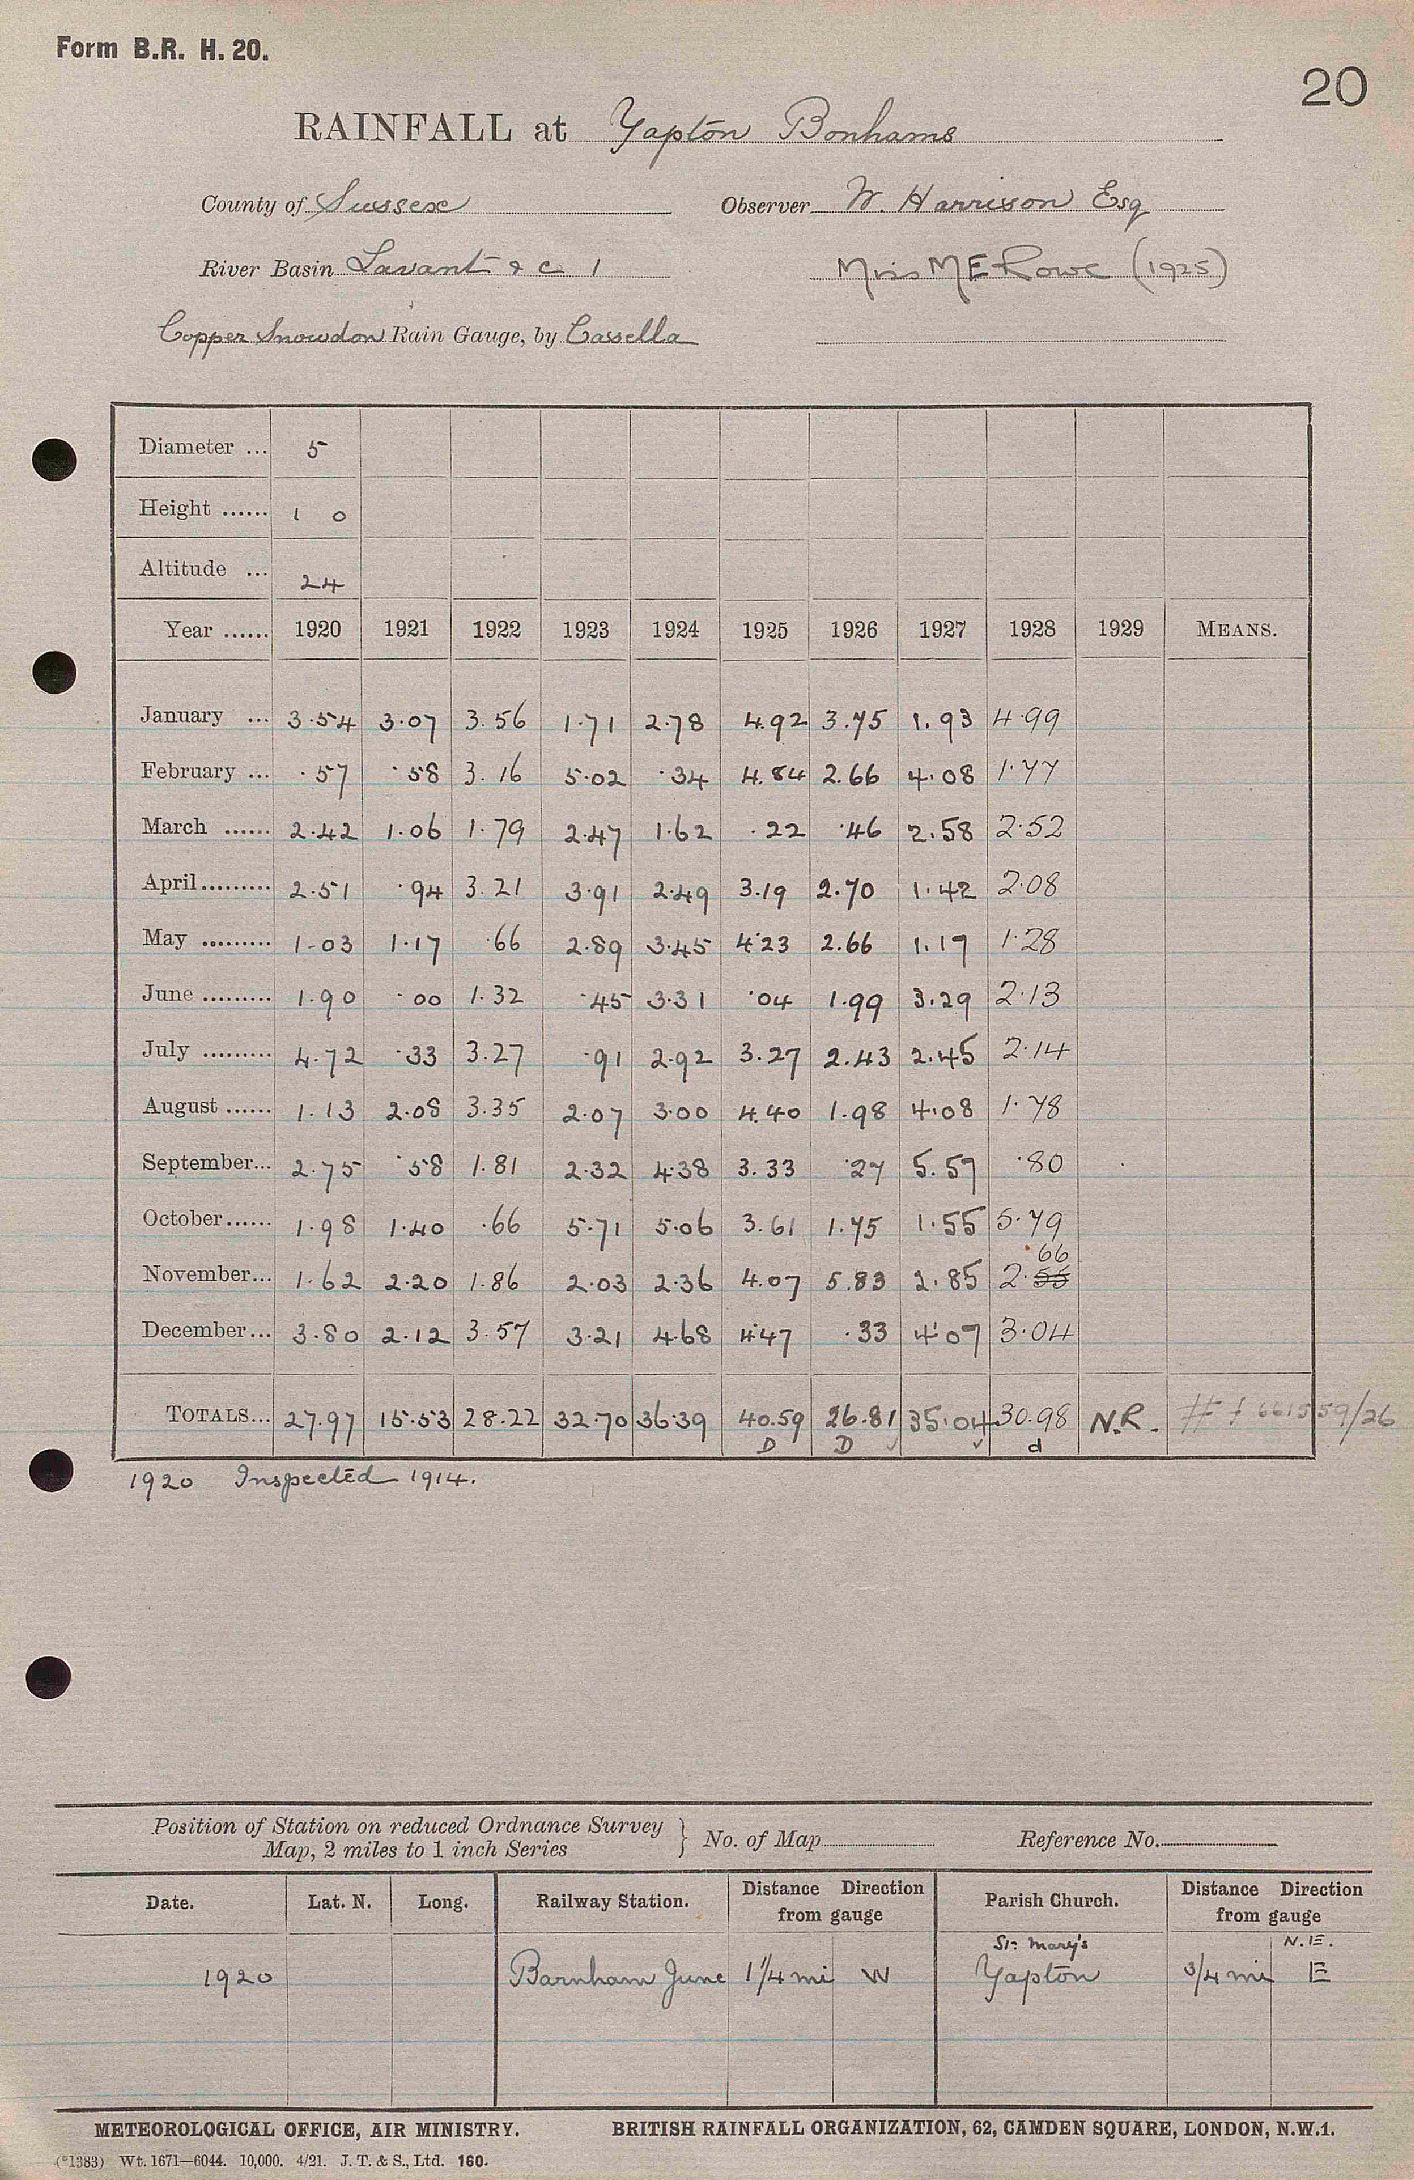 Form B.R. H. 20.
20
RAINFALL at Yapton Bonhams
County of Sussex Observer W. Harrison Esq
River Basin Lavant & c 1 Miss M E Rowe (1925)
Copper Snowdon Rain Gauge, by Cassella
Diameter ... 5
Height ...... 1 0
Altitude ... 24
Year ...... 1920 1921 1922 1923 1924 1925 1926 1927 1928 1929 MEANS.
January ... 3.54 3.07 3.56 1.71 2.78 4.92 3.75 1.93 4.99
February ... .57 .58 3.16 5.02 .34 4.84 2.66 4.08 1.77
March ...... 2.42 1.06 1.79 2.47 1.62 .22 .46 2.58 2.52
April......... 2.51 .94 3.21 3.91 2.49 3.19 2.70 1.42 2.08
May ......... 1.03 1.17 .66 2.89 3.45 4.23 2.66 1.17 1.28
June ......... 1.90 .00 1.32 .45 3.31 .04 1.99 3.29 2.13
July ......... 4.72 .33 3.27 .91 2.92 3.27 2.43 2.45 2.14
August ...... 1.13 2.08 3.35 2.07 3.00 4.40 1.98 4.08 1.78
September... 2.75 .58 1.81 2.32 4.38 3.33 .27 5.57 .80
October...... 1.98 1.40 .66 5.71 5.06 3.61 1.75 1.55 5.79
.66
November... 1.62 2.20 1.86 2.03 2.36 4.07 5.83 2.85 2.56
December... 3.80 2.12 3.57 3.21 4.68 4.47 .33 4.07 3.04
TOTALS... 27.97 15.53 28.22 32.70 36.39 40.59 26.81 35.04 30.98 N.R. 661559/26
D D ✓ ✓ d
1920 Inspected 1914.
Position of Station on reduced Ordnance Survey
Map, 2 miles to 1 inch Series } No. of Map Reference No.
Date. Lat. N. Long. Railway Station. Distance Direction from gauge Parish Church. Distance Direction from gauge
St. Mary's N.E.
1920 Barnham Junc 1 1/4 mi W Yapton 3/4 mi E
METEOROLOGICAL OFFICE, AIR MINISTRY. BRITISH RAINFALL ORGANIZATION, 62, CAMDEN SQUARE, LONDON, N.W.1.
(*1383) Wt. 1671—6044. 10,000. 4/21. J. T. & S., Ltd. 160.